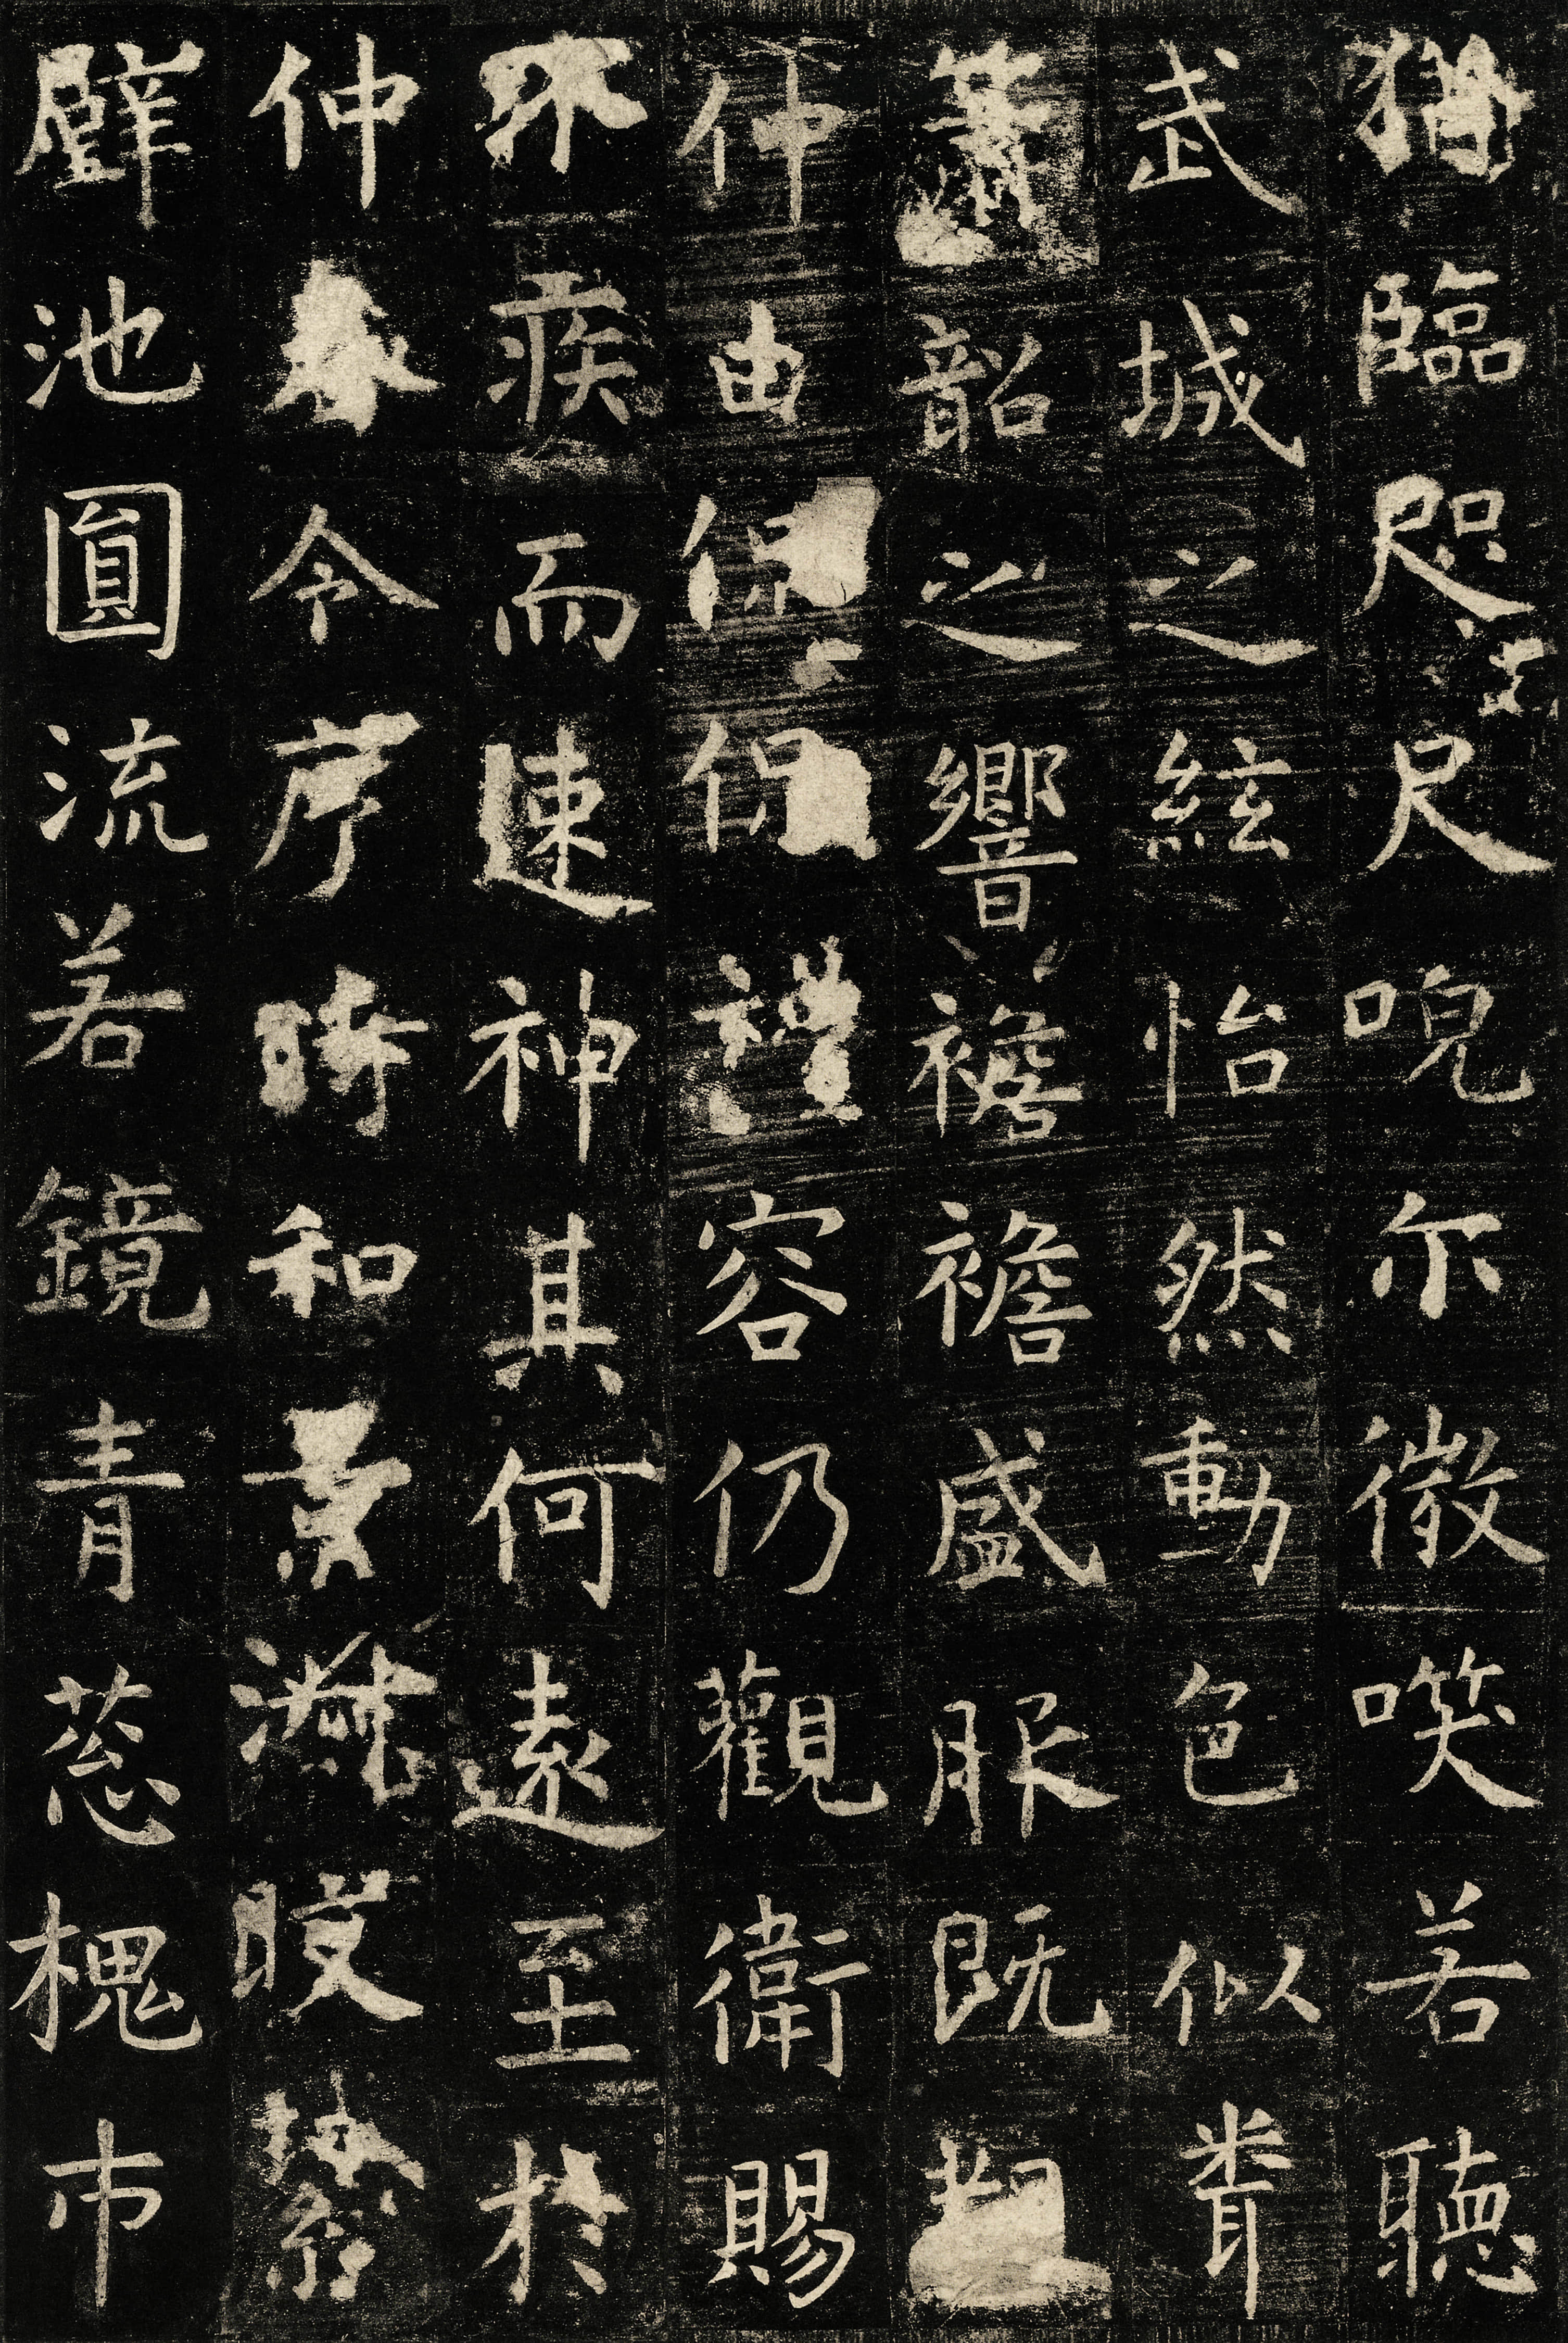 猶臨咫尺唲尔微㗛若聽
武城之絃怡然動色似聞
簫韶之響襜襜盛服既覩
仲由侃侃禮容仍觀衛賜
不疾而速神其何遠至於
仲春令序時和景淑晈絜
璧池圓流若鏡青葱槐市